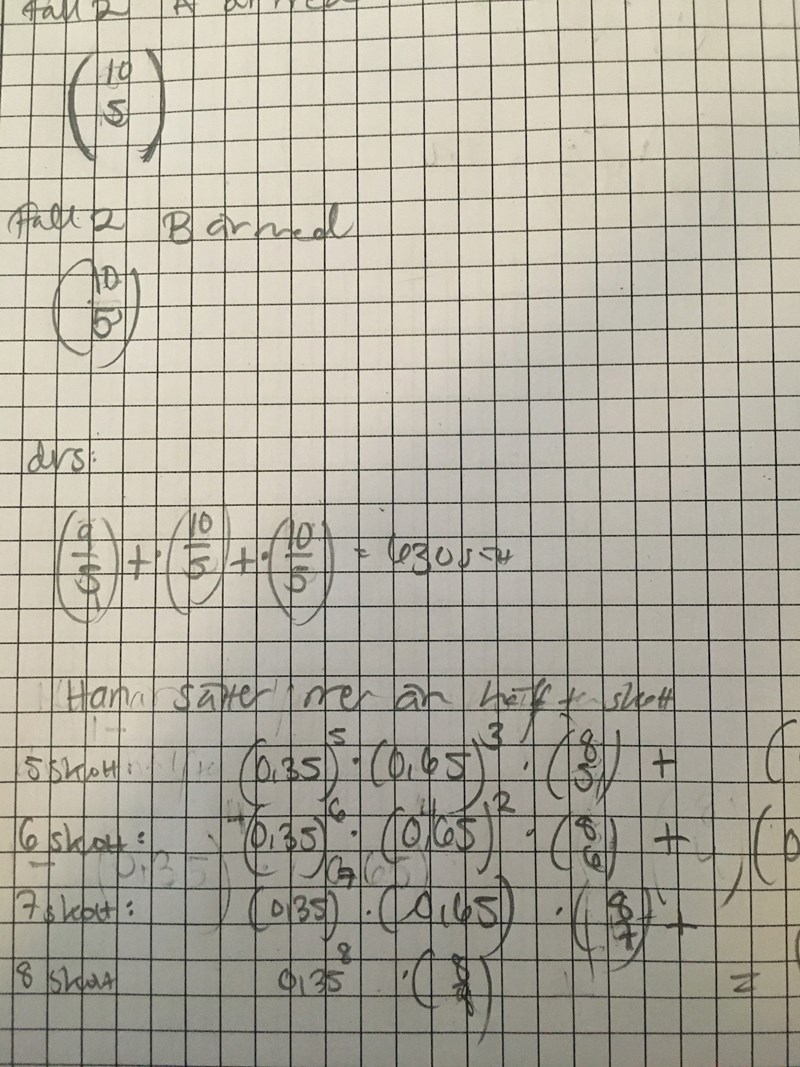 Fall 2 A är med
(10 5)
Fall 2 B är med
(10 5)
dvs:
(9/5) + (10/5) + (10/5) = 630
Han sätter mer än hälften skott
5 skott: (0,35)^5 · (0,65)^3 · (8 5) + (
6 skott: (0,35)^6 · (0,65)^2 · (8 6) + (0
7 skott: (0,35)^7 · (0,65) · (8 7) +
8 skott 0,35^8 · (8 8) =